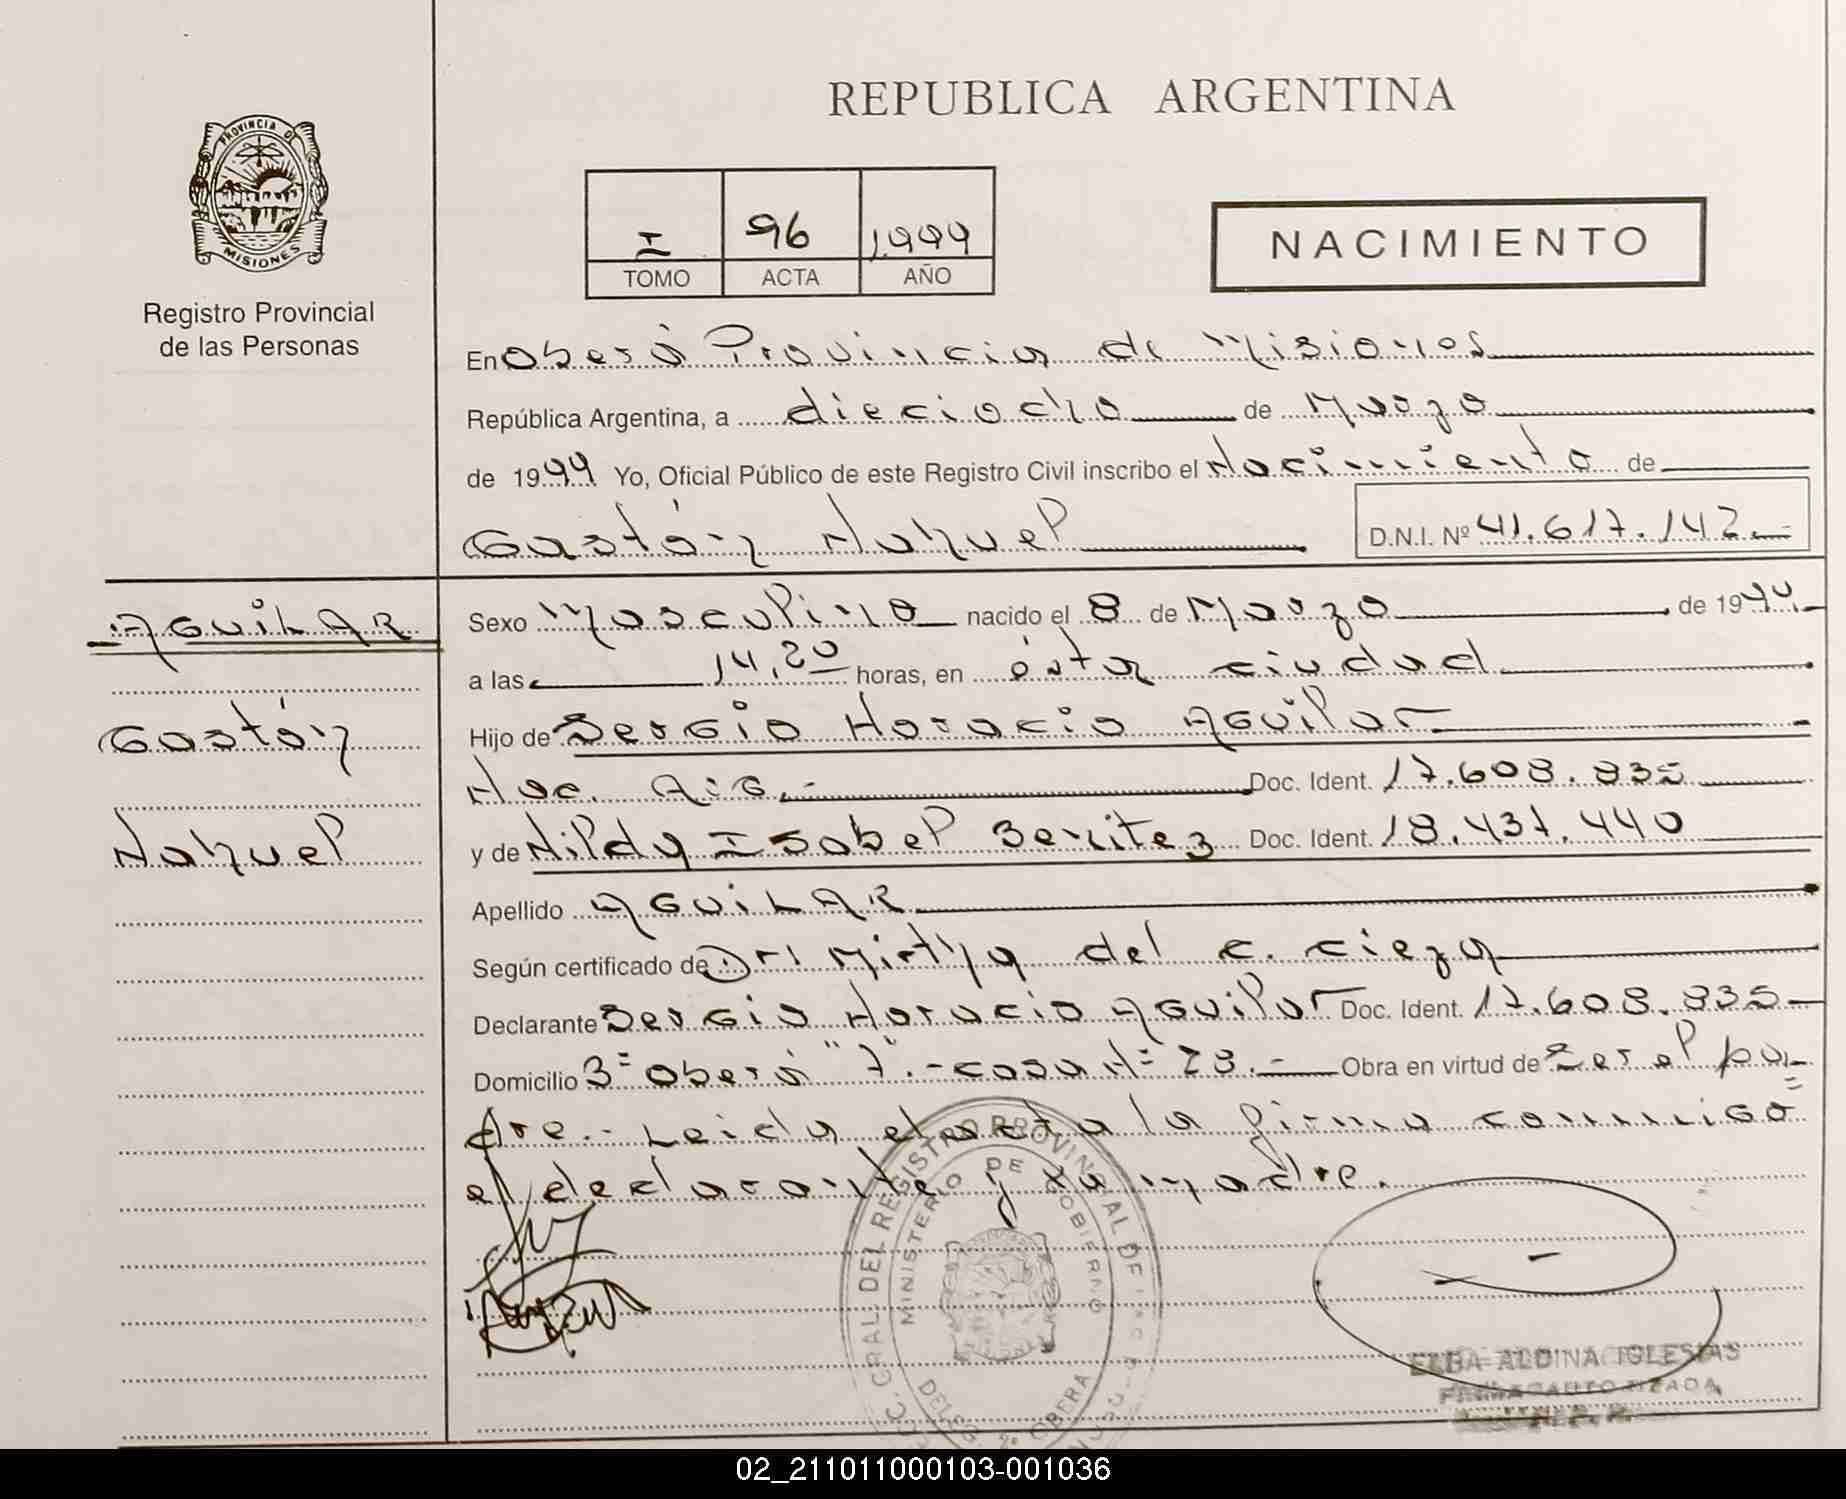 REPUBLICA ARGENTINA
PROVINCIA DE MISIONES
Registro Provincial
de las Personas
I 96 1.999
TOMO ACTA AÑO
NACIMIENTO
En Oberá Provincia de Misiones
República Argentina, a dieciocho de Marzo
de 1999 Yo, Oficial Público de este Registro Civil inscribo el Nacimiento de
Gastón Nahuel D.N.I. Nº 41.617.142.-
AGUILAR
Gastón
Nahuel
Sexo Masculino nacido el 8 de Marzo de 1999.
a las 14,20 horas, en ésta ciudad
Hijo de Sergio Horacio Aguilar
Nac. Arg.- Doc. Ident. 17.608.835
y de Nilda Isabel Benitez Doc. Ident. 18.437.440
Apellido AGUILAR
Según certificado de Dr. del C. Cieza
Declarante Sergio Horacio Aguilar Doc. Ident. 17.608.835
Domicilio 3= Oberá "7".- casa N= 23.- Obra en virtud de Ser el pa=
dre.- Leida el acta la firma conmigo
el declarante y la madre.
REGISTRO PROVINCIAL DE
MINISTERIO DE GOBIERNO
DELEG. 2ª OBERA
ELBA ALDINA IGLESIAS
02_211011000103-001036